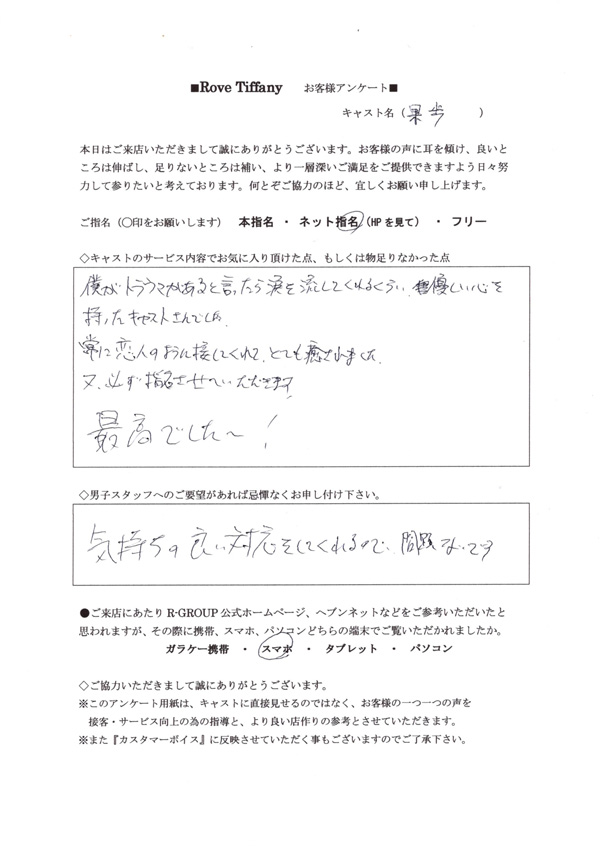 ■Rove Tiffany お客様アンケート■
キャスト名（果歩）
本日はご来店いただきまして誠にありがとうございます。お客様の声に耳を傾け、良いと
ころは伸ばし、足りないところは補い、より一層深いご満足をご提供できますよう日々努
力して参りたいと考えております。何とぞご協力のほど、宜しくお願い申し上げます。
ご指名（〇印をお願いします） 本指名 ・ ネット指名（HPを見て） ・ フリー
◇キャストのサービス内容でお気に入り頂けた点、もしくは物足りなかった点
僕がトラウマがあると言ったら涙を流してくれるくらい、優しい心を
持ったキャストさんでした。
常に恋人のように接してくれて、とても癒されました。
又、必ず指名させていただきます!
最高でした〜!
◇男子スタッフへのご要望があれば忌憚なくお申し付け下さい。
気持ちの良い対応をしてくれるので、問題ないです
●ご来店にあたり R-GROUP 公式ホームページ、ヘブンネットなどをご参考いただいたと
思われますが、その際に携帯、スマホ、パソコンどちらの端末でご覧いただかれましたか。
ガラケー携帯 ・ スマホ ・ タブレット ・ パソコン
◇ご協力いただきまして誠にありがとうございます。
※このアンケート用紙は、キャストに直接見せるのではなく、お客様の一つ一つの声を
接客・サービス向上の為の指導と、より良い店作りの参考とさせていただきます。
※また『カスタマーボイス』に反映させていただく事もございますのでご了承下さい。